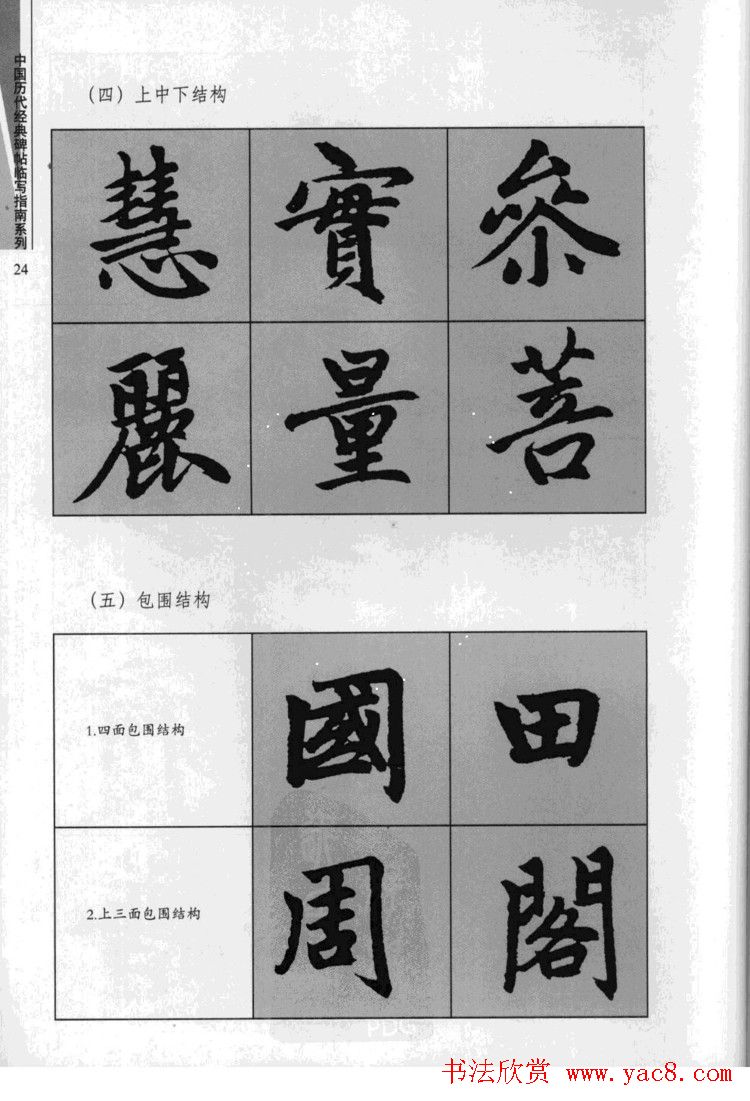 中国历代经典碑帖临写指南系列
24
（四）上中下结构
慧 實 叅
麗 量 菩
（五）包围结构
1.四面包围结构
國 田
2.上三面包围结构
周 閣
PDG
书法欣赏 www.yac8.com